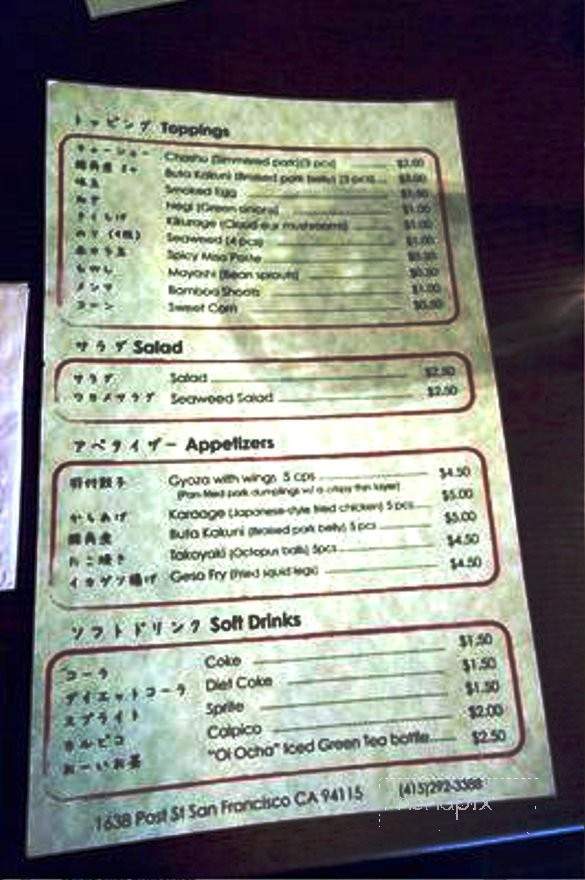 トッピング Toppings
チャーシュー Chashu (Simmered pork)(3 pcs) $2.00
Buta Kakuni (Braised pork belly) (3 pcs) $3.00
味玉 Smoked Egg
ねぎ Negi (Green onions) $1.00
きくらげ Kikurage (Cloud ear mushrooms) $1.00
のり (4枚) Seaweed (4 pcs) $1.00
Spicy Miso Paste
もやし Mayashi (Bean sprouts)
メンマ Bamboo Shoots $1.00
コーン Sweet Corn $0.50
サラダ Salad
サラダ Salad $2.50
ワカメサラダ Seaweed Salad $2.50
アペタイザー Appetizers
羽付餃子 Gyoza with wings 5 cps $4.50
(Pan-fried pork dumplings w/ a crispy thin layer)
からあげ Karaage (Japanese-style fried chicken) 5 pcs $5.00
豚角煮 Buta Kakuni (Braised pork belly) 5 pcs $5.00
たこ焼き Takoyaki (Octopus balls) 5pcs $4.50
イカゲソ揚げ Geso Fry (Fried squid legs) $4.50
ソフトドリンク Soft Drinks
コーラ Coke $1.50
ダイエットコーラ Diet Coke $1.50
スプライト Sprite $1.50
カルピコ Calpico $2.00
おーいお茶 "Oi Ocha" Iced Green Tea bottle $2.50
1638 Post St San Francisco CA 94115 (415)292-3388